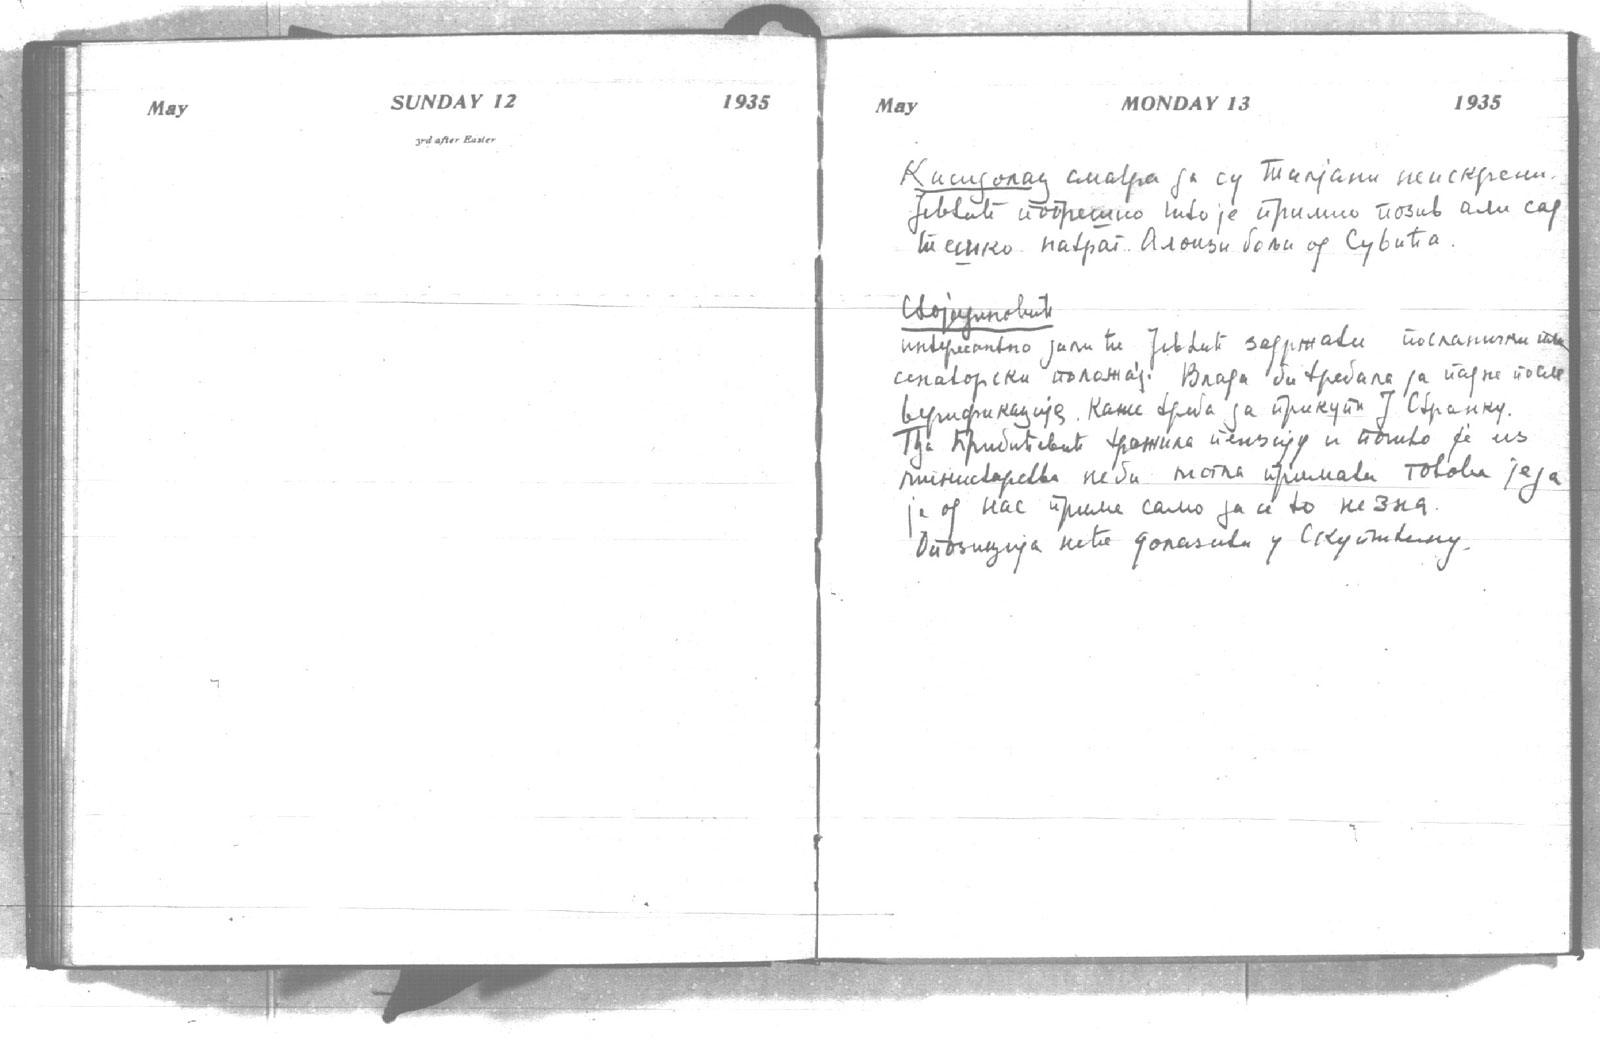 May SUNDAY 12 1935
3rd after Easter
May MONDAY 13 1935
сматра да су Талјани неискрени.
Јевтић погрешио што је примио позив али сад
тешко натраг. Алоизи бољи од Сувића.
Стојадиновић
интересантно дали ће Јевтић задржати посланички или
сенаторски положај. Влада би требала да падне после
верификације. Каже треба да прикупи Ј Странку.
Гђа Прибићевић тражила пензију и пошто је из
министарства неби хтела примати готова је да
је од нас прими само да се то не зна.
Опозиција неће долазити у Скупштину.